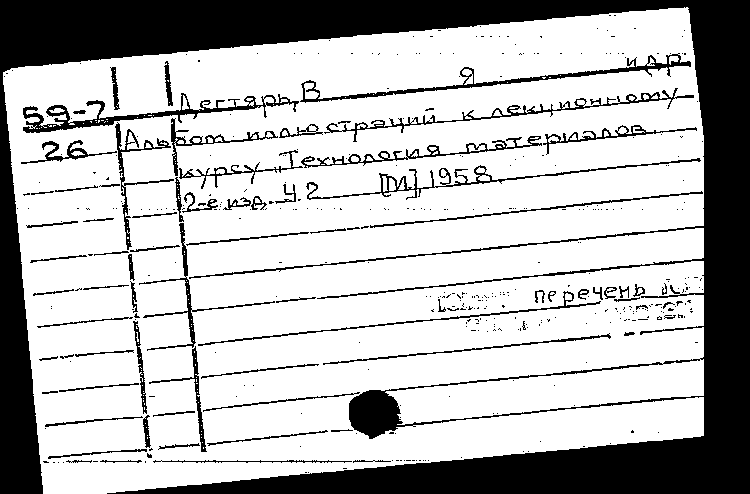 59-7
26
Дегтярь, В Я и др
Альбом иллюстраций к лекционному
курсу „Технология материалов.
2-е изд. Ч.2 [М], 1958.
перечень